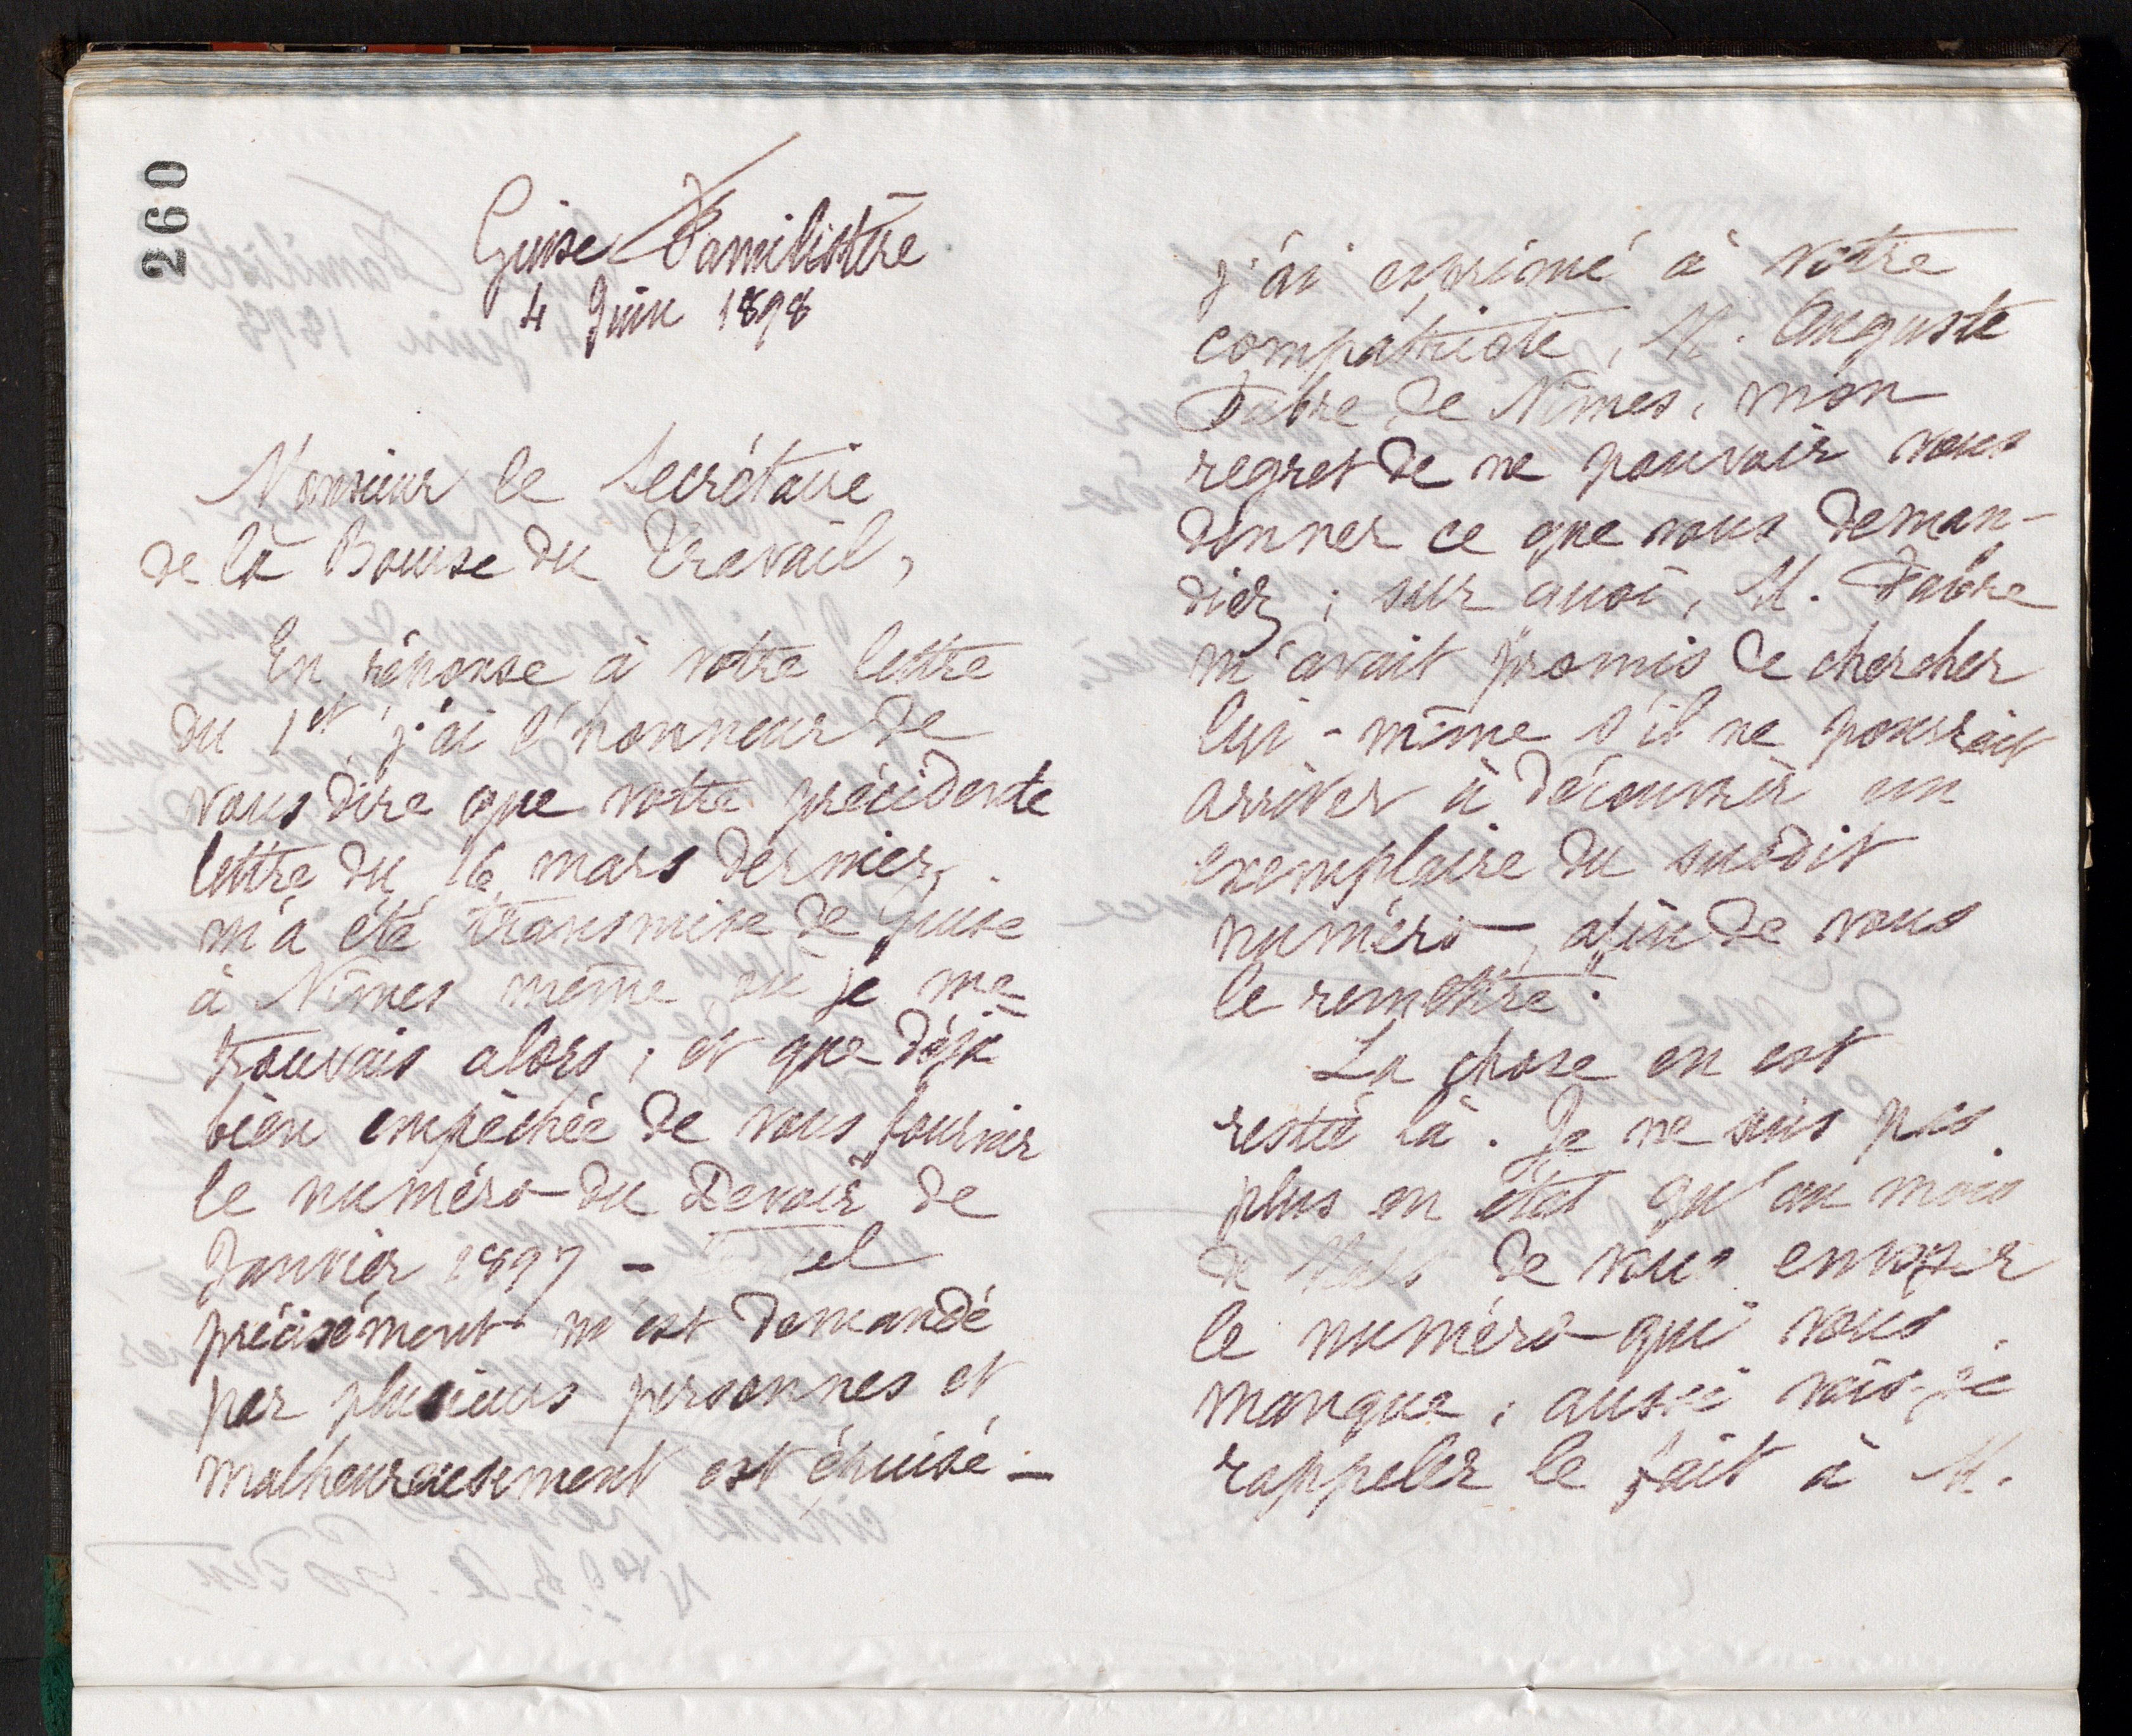 260
Guise Familistère
4 Juin 1898
Monsieur le Secrétaire
de la Bourse du Travail,
En réponse à votre lettre
du 1er j'ai l'honneur de
vous dire que votre précédente
lettre du 16 mars dernier
m'a été transmise de Guise
à Nîmes même où je me
trouvais alors, et que déjà
bien empêchée de vous fournir
le numéro du Devoir de
Janvier 1897 - el
précisément m'est demandé
par plusieurs personnes et
malheureusement est épuisé -
j'ai exprimé à votre
compatriote, M. Auguste
Fabre de Nîmes, mon
regret de ne pouvoir vous
donner ce que vous deman-
diez ; sur quoi, M. Fabre
m'avait promis de chercher
lui-même s'il ne pourrait
arriver à découvrir un
exemplaire du susdit
numéro, afin de vous
le remettre.
La chose en est
restée là. Je ne suis pas
plus en état qu'au mois
de Mars de vous envoyer
le numéro qui vous
manque ; aussi vais-je
rappeler le fait à M.